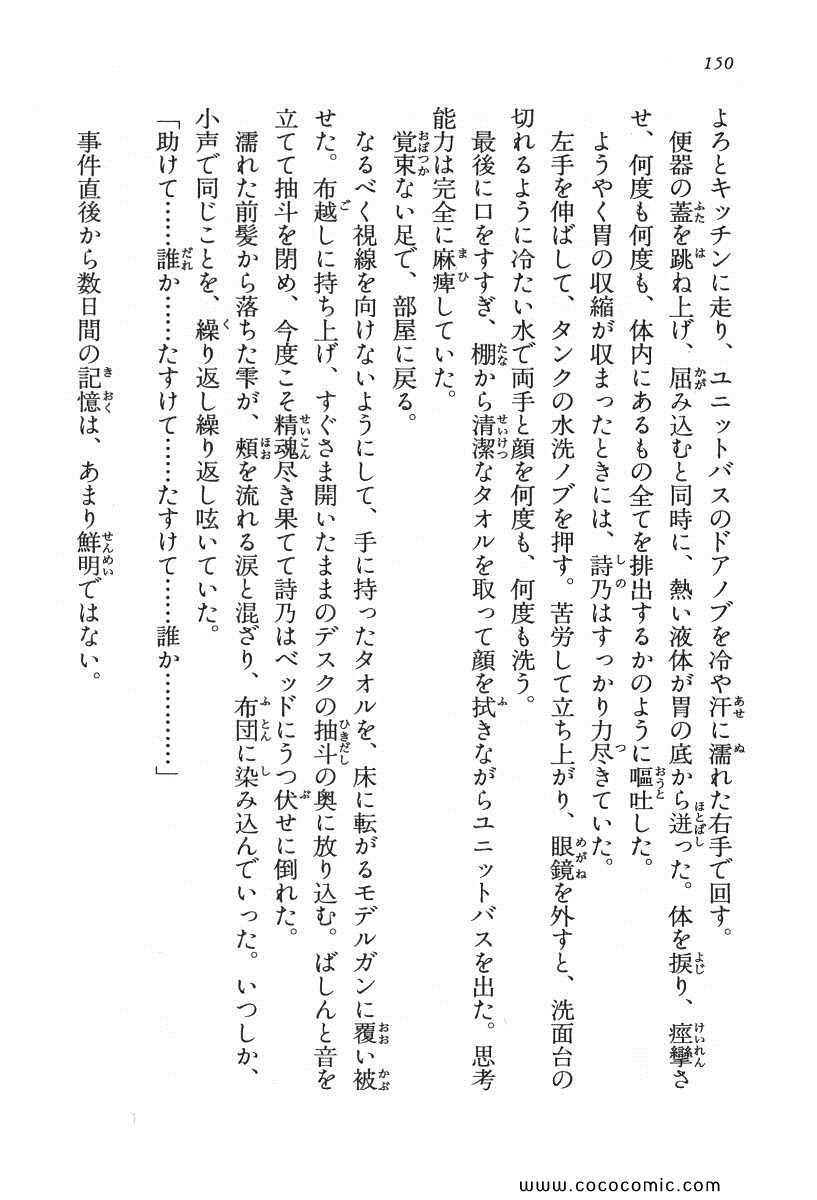 150
よろとキッチンに走り、ユニットバスのドアノブを冷や汗に濡れた右手で回す。
便器の蓋を跳ね上げ、屈み込むと同時に、熱い液体が胃の底から迸った。体を捩り、痙攣さ
せ、何度も何度も、体内にあるもの全てを排出するかのように嘔吐した。
ようやく胃の収縮が収まったときには、詩乃はすっかり力尽きていた。
左手を伸ばして、タンクの水洗ノブを押す。苦労して立ち上がり、眼鏡を外すと、洗面台の
切れるように冷たい水で両手と顔を何度も、何度も洗う。
最後に口をすすぎ、棚から清潔なタオルを取って顔を拭きながらユニットバスを出た。思考
能力は完全に麻痺していた。
覚束ない足で、部屋に戻る。
なるべく視線を向けないようにして、手に持ったタオルを、床に転がるモデルガンに覆い被
せた。布越しに持ち上げ、すぐさま開いたままのデスクの抽斗の奥に放り込む。ばしんと音を
立てて抽斗を閉め、今度こそ精魂尽き果てて詩乃はベッドにうつ伏せに倒れた。
濡れた前髪から落ちた雫が、頬を流れる涙と混ざり、布団に染み込んでいった。いつしか、
小声で同じことを、繰り返し繰り返し呟いていた。
「助けて……誰か……たすけて……たすけて……誰か…………」
事件直後から数日間の記憶は、あまり鮮明ではない。
www.cococomic.com